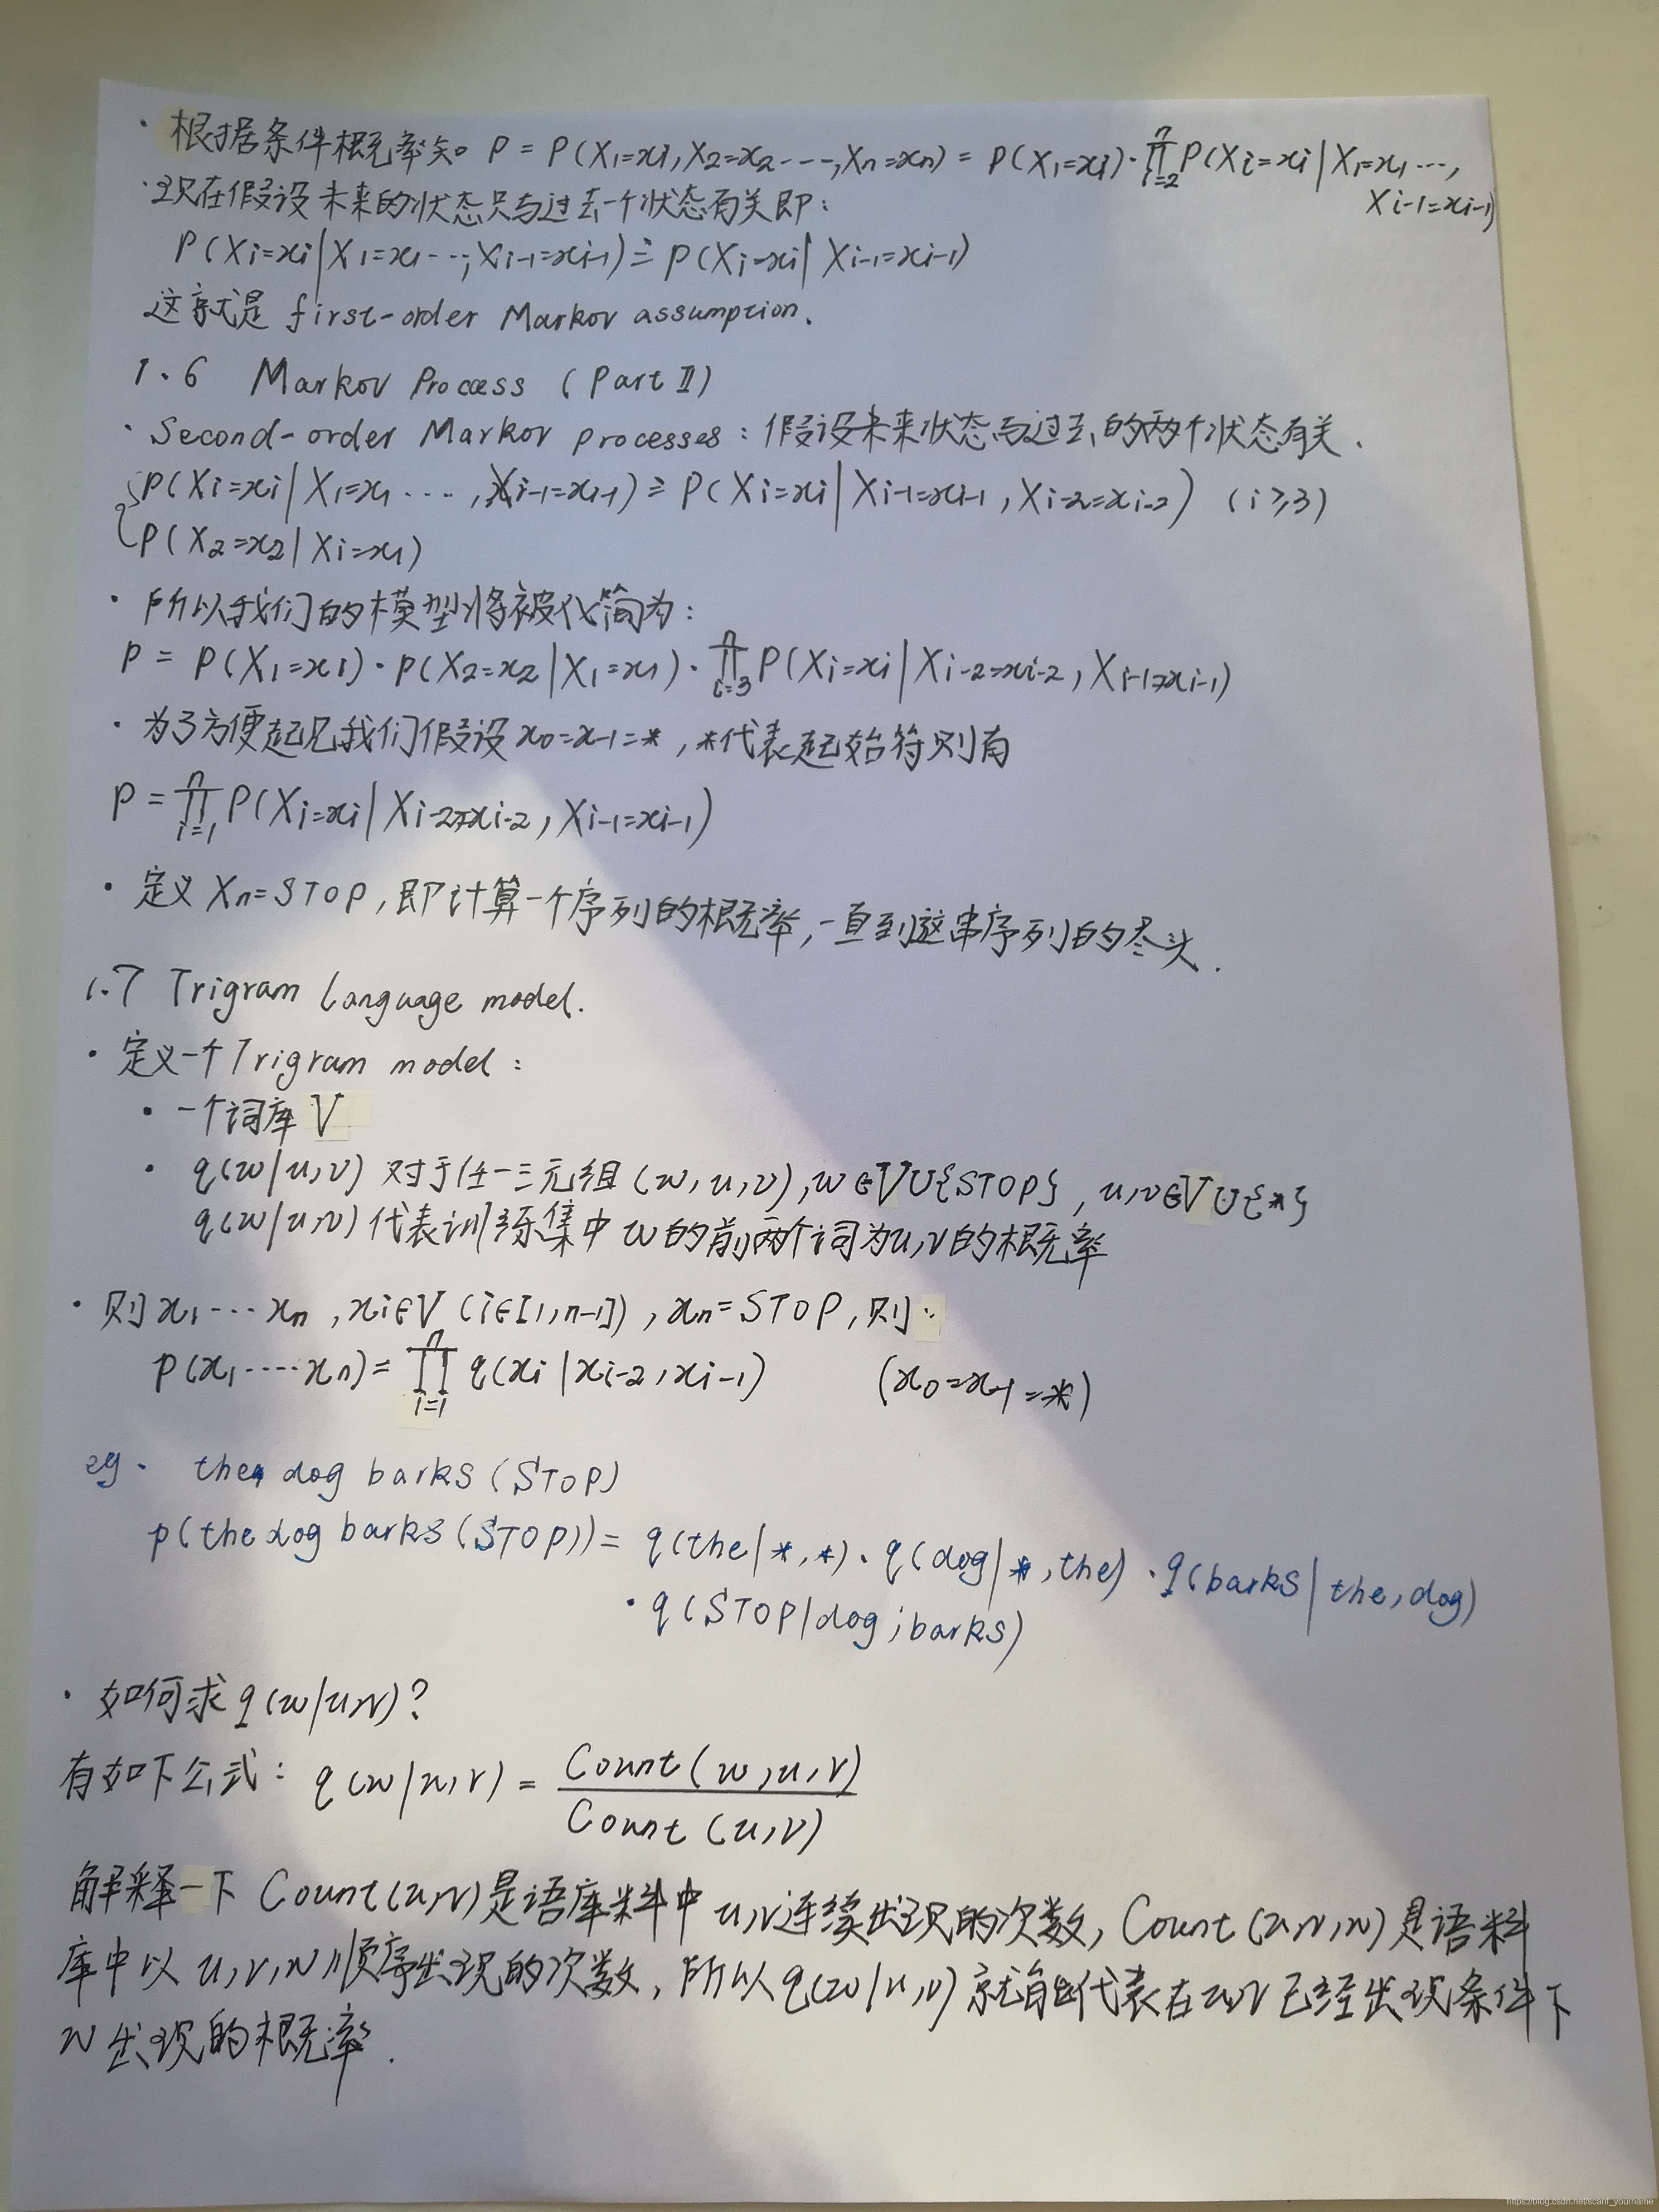 · 根据条件概率知 P = P(X₁=xi, X₂=x₂ ----, Xn=xn) = P(X₁=xi)·∏ⁿᵢ₌₂P(Xi=xi | X₁=x₁ ···,
Xi-1=xi-1)
·现在假设未来的状态只与过去一个状态有关即:
P(Xi=xi | X₁=x₁ ···, Xi-1=xi-1) ≐ P(Xi=xi | Xi-1=xi-1)
这就是 first-order Markov assumption.
1.6 Markov Process (Part II)
· Second-order Markov processes: 假设未来状态与过去的两个状态有关.
P(Xi=xi | X₁=x₁ ····, Xi-1=xi-1) ≐ P(Xi=xi | Xi-1=xi-1, Xi-2=xi-2) (i≥3)
P(X₂=x₂ | Xi=x₁)
· 所以我们的模型将被化简为:
P = P(X₁=x1)·P(X₂=x₂ | X₁=x₁)·∏ⁿᵢ₌₃P(Xi=xi | Xi-2=xi-2, Xi-1=xi-1)
· 为了方便起见我们假设 x₀=x-1=*, *代表起始符则有
P = ∏ⁿᵢ₌₁P(Xi=xi | Xi-2=xi-2, Xi-1=xi-1)
· 定义 Xn=STOP, 即计算一个序列的概率, 一直到这串序列的尽头.
1.7 Trigram Language model.
· 定义一个Trigram model:
· 一个词库 V
· q(w|u,v) 对于任一三元组 (w,u,v), w∈V∪{STOP}, u,v∈V∪{*}
q(w|u,v) 代表训练集中 w的前两个词为u,v的概率
· 则 x₁ ··· xn, xi∈V (i∈[1,n-1]), xn=STOP, 则:
p(x₁ ···· xn) = ∏ⁿᵢ₌₁ q(xi | xi-2, xi-1) (x₀=x-1=*)
eg. the dog barks (STOP)
p(the dog barks (STOP)) = q(the|*,*)·q(dog|*,the)·q(barks|the,dog)
·q(STOP|dog,barks)
· 如何求 q(w|u,v)?
有如下公式: q(w|u,v) = Count(w,u,v)
Count(u,v)
解释一下 Count(u,v)是语库料中 u,v连续出现的次数, Count(u,v,w)是语料
库中以 u,v,w 顺序出现的次数, 所以 q(w|u,v) 就能代表在u,v已经出现条件下
w 出现的概率.
https://blog.csdn.net/scanf_yourname